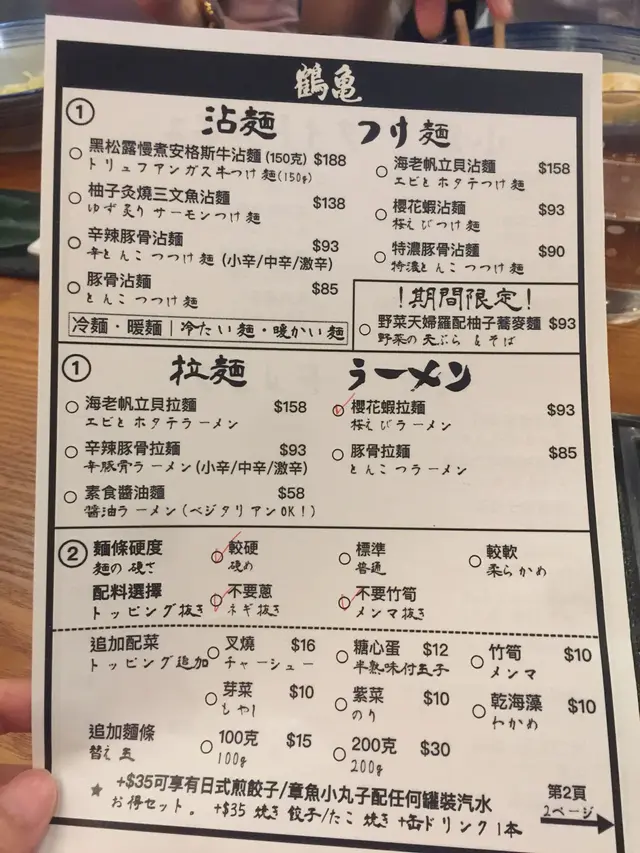 鶴亀
① 沾麵 つけ麵
黑松露慢煮安格斯牛沾麵 (150克) $188
トリュフアンガス牛つけ麺(150g)
柚子炙燒三文魚沾麵 $138
ゆず炙り サーモンつけ麺
辛辣豚骨沾麵 $93
辛とんこつつけ麺 (小辛/中辛/激辛)
豚骨沾麵 $85
とんこつつけ麺
冷麵・暖麵 | 冷たい麺・暖かい麺
海老帆立貝沾麵 $158
エビとホタテつけ麺
櫻花蝦沾麵 $93
桜えびつけ麺
特濃豚骨沾麵 $90
特濃とんこつつけ麺
!期間限定!
野菜天婦羅配柚子蕎麥麵 $93
野菜の天ぷら & そば
① 拉麵 ラーメン
海老帆立貝拉麵 $158
エビとホタテラーメン
辛辣豚骨拉麵 $93
辛豚骨ラーメン(小辛/中辛/激辛)
素食醬油麵 $58
醤油ラーメン(ベジタリアンOK!)
櫻花蝦拉麵 $93
桜えびラーメン
豚骨拉麵 $85
とんこつラーメン
② 麵條硬度 較硬 標準 較軟
麺の硬さ 硬め 普通 柔らかめ
配料選擇 不要蔥 不要竹筍
トッピング抜き ネギ抜き メンマ抜き
追加配菜 叉燒 $16 糖心蛋 $12 竹筍 $10
トッピング追加 チャーシュー 半熟味付玉子 メンマ
芽菜 $10 紫菜 $10 乾海藻 $10
もやし のり わかめ
追加麵條 100克 $15 200克 $30
替え玉 100g 200g
★ +$35可享有日式煎餃子/章魚小丸子配任何罐裝汽水
お得セット。 +$35 焼き餃子/たこ焼き+缶ドリンク1本
第2頁
2ページ